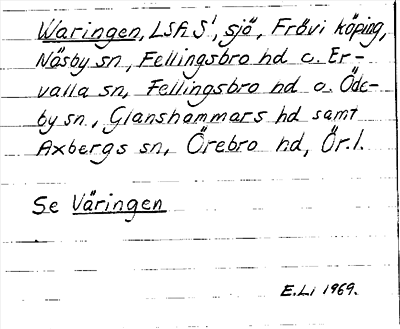 Waringen, LSA S¹, sjö, Frövi köping,
Näsby sn, Fellingsbro hd o. Er-
valla sn, Fellingsbro hd o. Öde-
by sn, Glanshammars hd samt
Axbergs sn, Örebro hd, Ör. l.
Se Väringen
E.Li 1969.